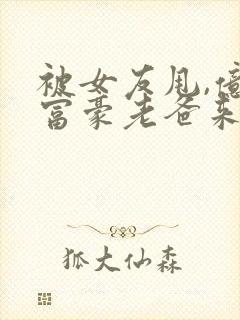 被女友甩,億
富豪老爸来
狐大仙森